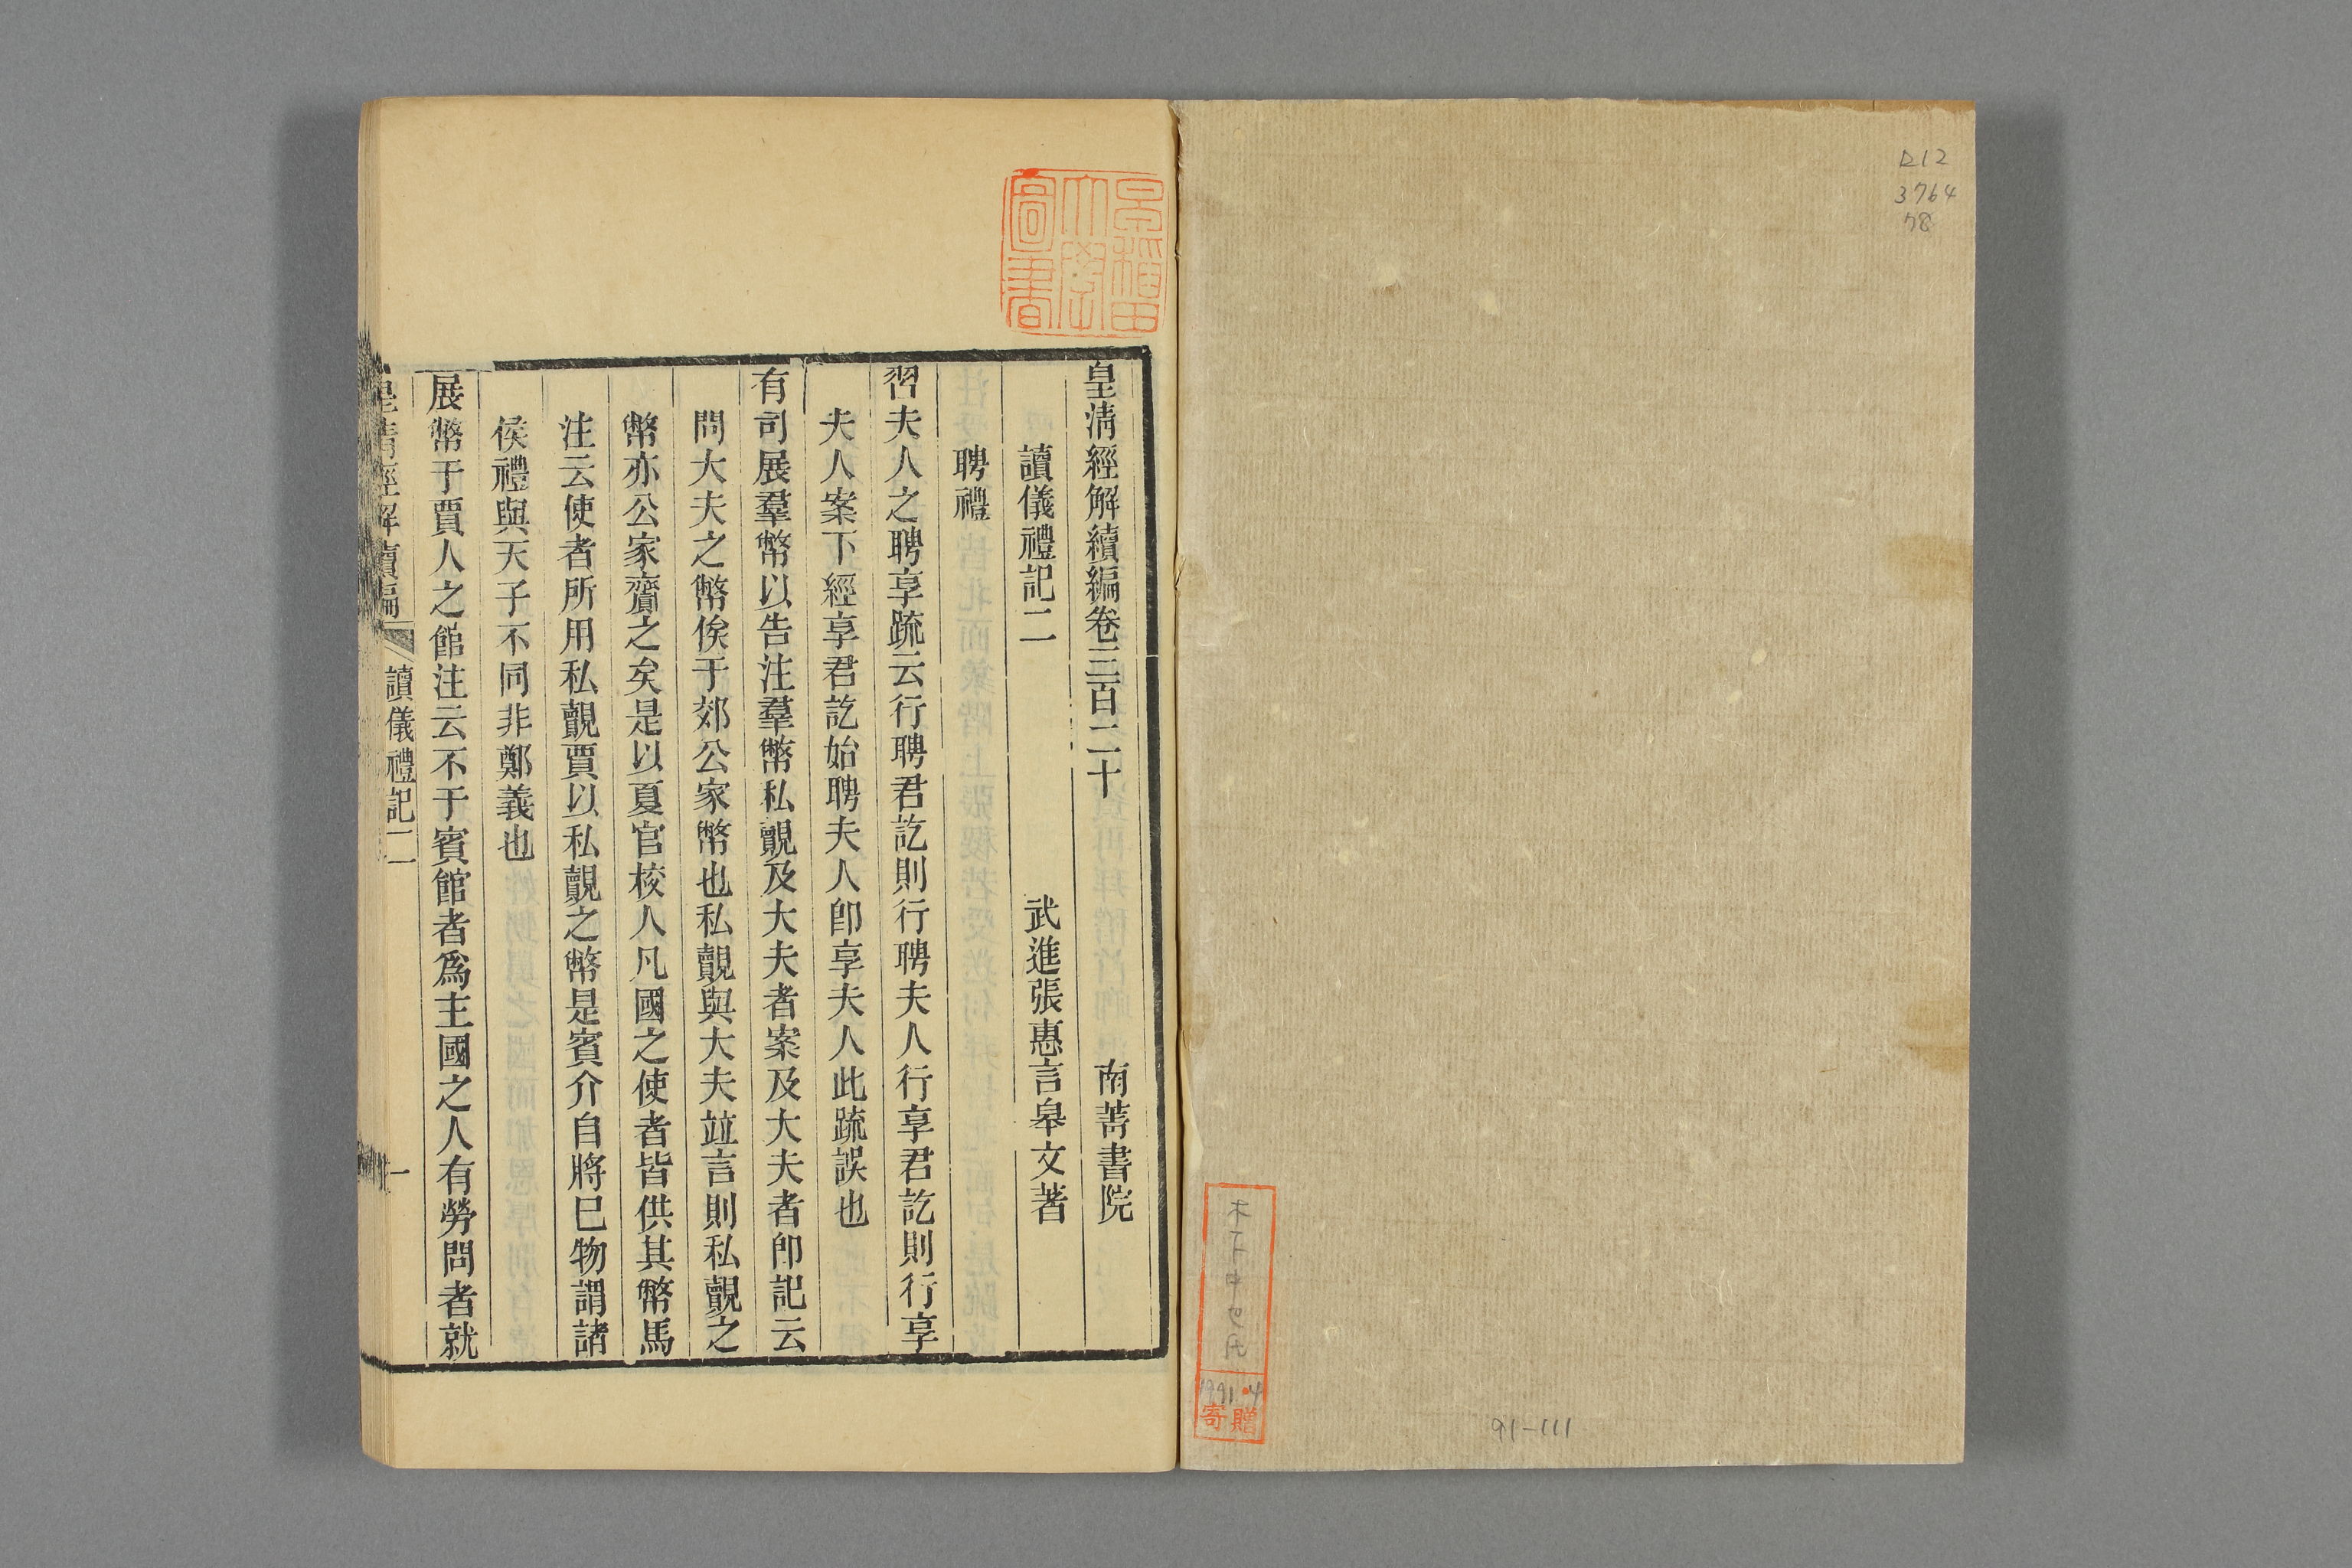 皇淸經解續編卷三百二十
南菁書院
讀儀禮記二
武進張惠言皋文著
聘禮
習夫人之聘享疏云行聘君訖則行聘夫人行享君訖則行享
夫人案下經享君訖始聘夫人卽享夫人此疏誤也
有司展羣幣以告注羣幣私覿及大夫者案及大夫者卽記云
問大夫之幣俟于郊公家幣也私覿與大夫竝言則私覿之
幣亦公家齎之矣是以夏官校人凡國之使者皆供其幣馬
注云使者所用私覿賈以私覿之幣是賓介自將巳物謂諸
侯禮與天子不同非鄭義也
展幣于賈人之館注云不于賓館者爲主國之人有勞問者就
皇淸經解續編
讀儀禮記二
一
早稻田大學圖書
D12
3764
78
1991.4
寄贈
91-111